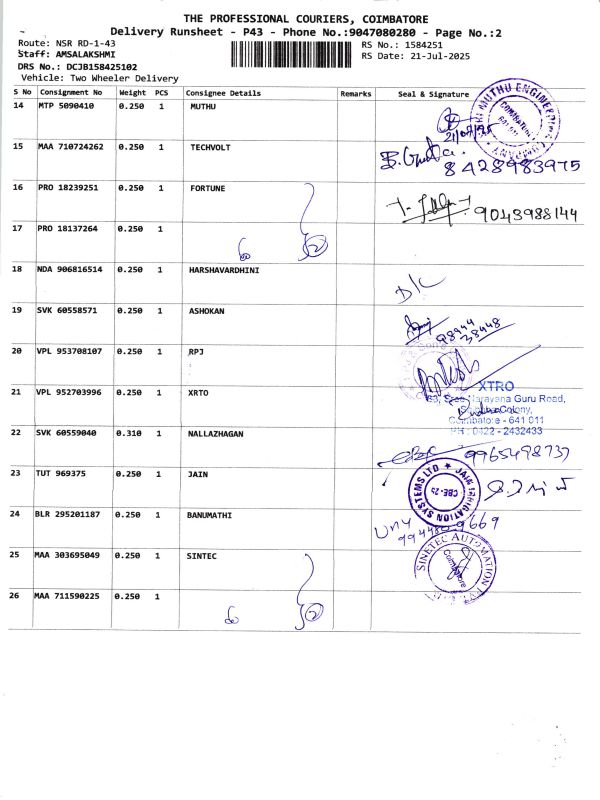 THE PROFESSIONAL COURIERS, COIMBATORE
Delivery Runsheet - P43 - Phone No.:9047080280 - Page No.:2
Route: NSR RD-1-43 RS No.: 1584251
Staff: AMSALAKSHMI RS Date: 21-Jul-2025
DRS No.: DCJB158425102
Vehicle: Two Wheeler Delivery
S No Consignment No Weight PCS Consignee Details Remarks Seal & Signature
14 MTP 5090410 0.250 1 MUTHU
21/07/25
15 MAA 710724262 0.250 1 TECHVOLT
8428983975
16 PRO 18239251 0.250 1 FORTUNE
9043988144
17 PRO 18137264 0.250 1
60 2
18 NDA 906816514 0.250 1 HARSHAVARDHINI
D/C
19 SVK 60558571 0.250 1 ASHOKAN
98944
38448
20 VPL 953708107 0.250 1 RPJ
21 VPL 952703996 0.250 1 XRTO
XTRO
Narayana Guru Road,
Colony,
Coimbatore - 641 011
PH : 0422 - 2432433
22 SVK 60559040 0.310 1 NALLAZHAGAN
9965498737
23 TUT 969375 0.250 1 JAIN
JAIN IRRIGATION SYSTEMS LTD
CBE-25
24 BLR 295201187 0.250 1 BANUMATHI
25 MAA 303695049 0.250 1 SINTEC
SINETEC AUTOMATION
Coimbatore
26 MAA 711590225 0.250 1
60 2